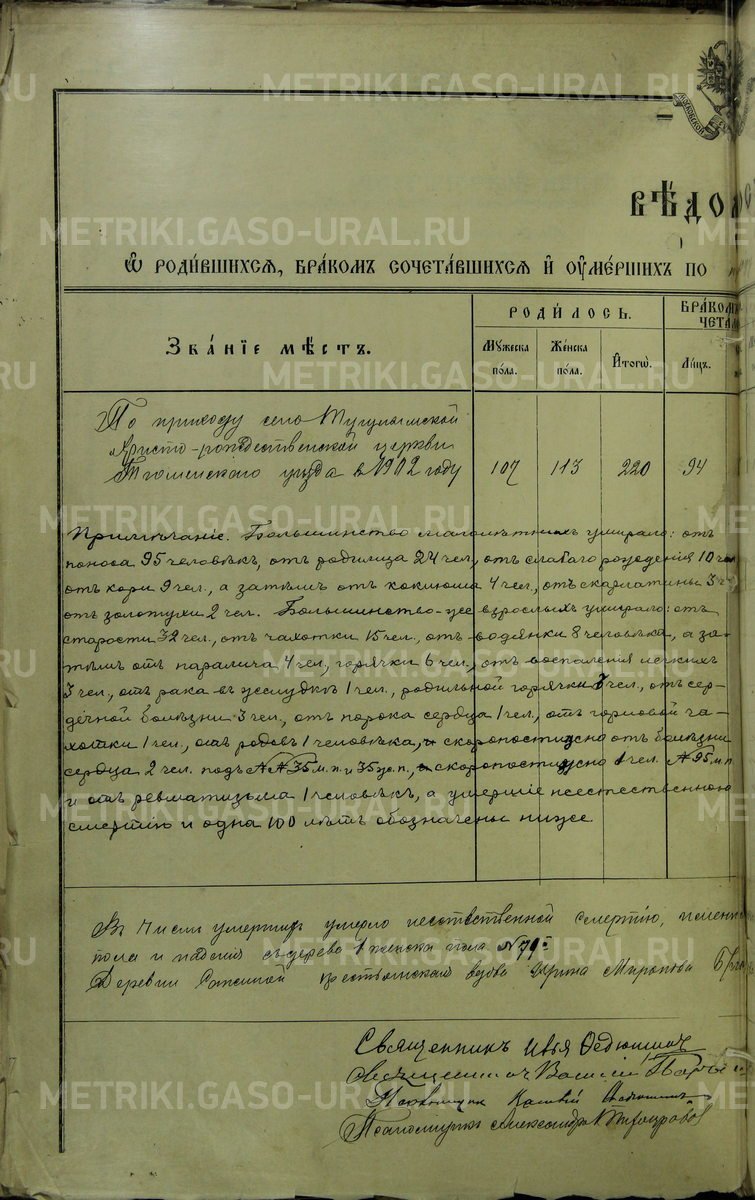 МОСКОВСКОЙ
ВѢДОМ
Ѡ РОДИ́ВШИХСѦ, БРА́КОМЪ СОЧЕТА́ВШИХСѦ И҆ ОУ҆МЕ́РШИХЪ ПО
ЗВА́НІЕ МѢ́СТЪ.
РОДИ́ЛОСЬ.
Мꙋ́жеска по́ла.
Же́нска по́ла.
И҆того̀.
БРА́КОМЪ
ЧЕТА
Ли́цъ.
По приходу села Тугулымской
Христо-рождественской церкви
Тюменскаго уѣзда въ 1902 году
107 113 220 94
Примѣчаніе. Большинство малолѣтнихъ умирало: отъ
поноса 95 человѣкъ, отъ родимца 24 чел., отъ слабаго рожденія 10 чел
отъ кори 9 чел., а затѣмъ отъ коклюша 4 чел., отъ скарлатины 3 ч
отъ золотухи 2 чел. Большинство-же взрослыхъ умирало: отъ
старости 32 чел., отъ чахотки 15 чел., отъ водянки 8 человѣкъ, а за-
тѣмъ отъ паралича 4 чел., горячки 6 чел., отъ воспаленія легкихъ
3 чел., отъ рака въ желудкѣ 1 чел., родильной горячки чел., отъ сер-
дечной болѣзни 3 чел., отъ порока сердца 1 чел., отъ горловой ча-
хотки 1 чел., отъ родовъ 1 человѣкъ, скоропостижно отъ болѣзни
сердца 2 чел. подъ №№ 35 м.п. и 35 ж.п., скоропостижно 1 чел. № 95 м.п
и отъ ревматизма 1 человѣкъ, а умершіе неестественною
смертію и одна 100 лѣтъ обозначены ниже.
Въ числѣ умершихъ умерло неестественной смертію,
пола и паденія съ дерева 1 женска пола № 79й
Деревни крестьянская вдова Ирина Миронова
Священникъ Илья Федюшинъ
Священникъ Василій
Псаломщикъ Александръ